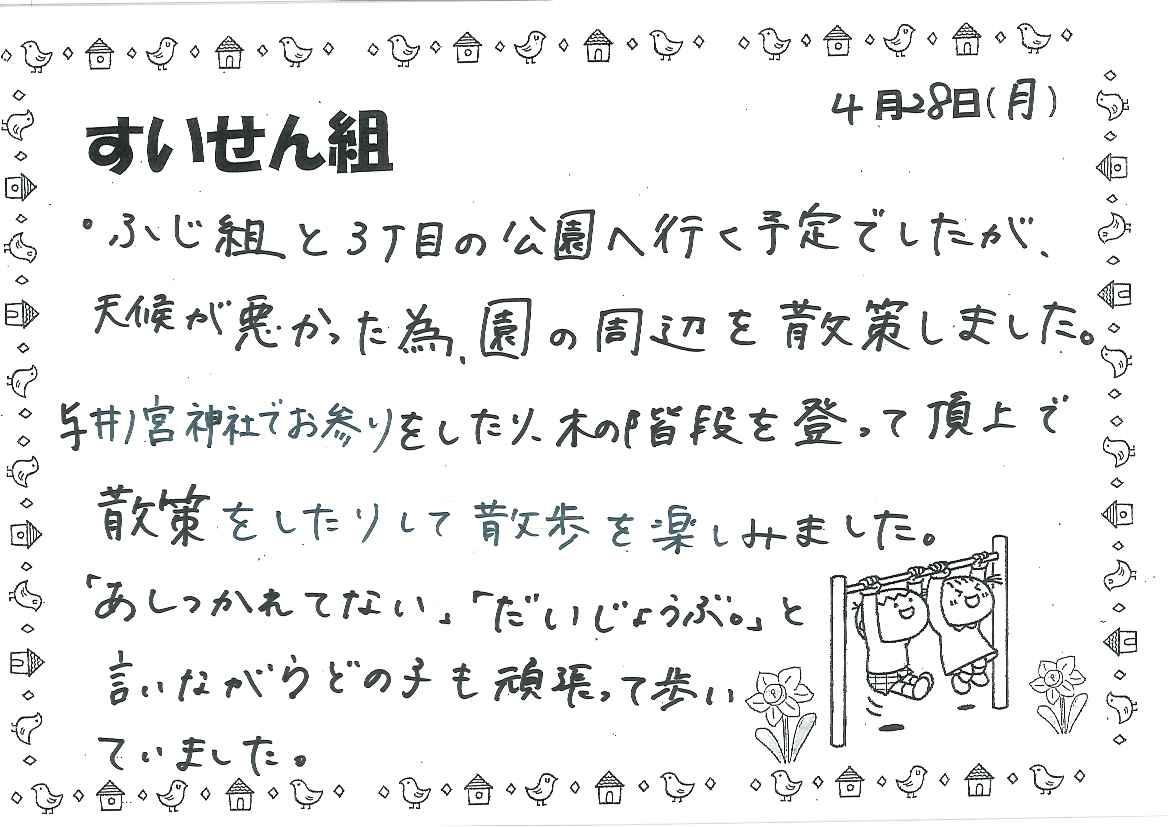 4月28日(月)
すいせん組
・ふじ組と3丁目の公園へ行く予定でしたが、
天候が悪かった為、園の周辺を散策しました。
与井ノ宮神社でお参りをしたり、木の階段を登って頂上で
散策をしたりして散歩を楽しみました。
「あしつかれてない」「だいじょうぶ。」と
言いながらどの子も頑張って歩い
ていました。